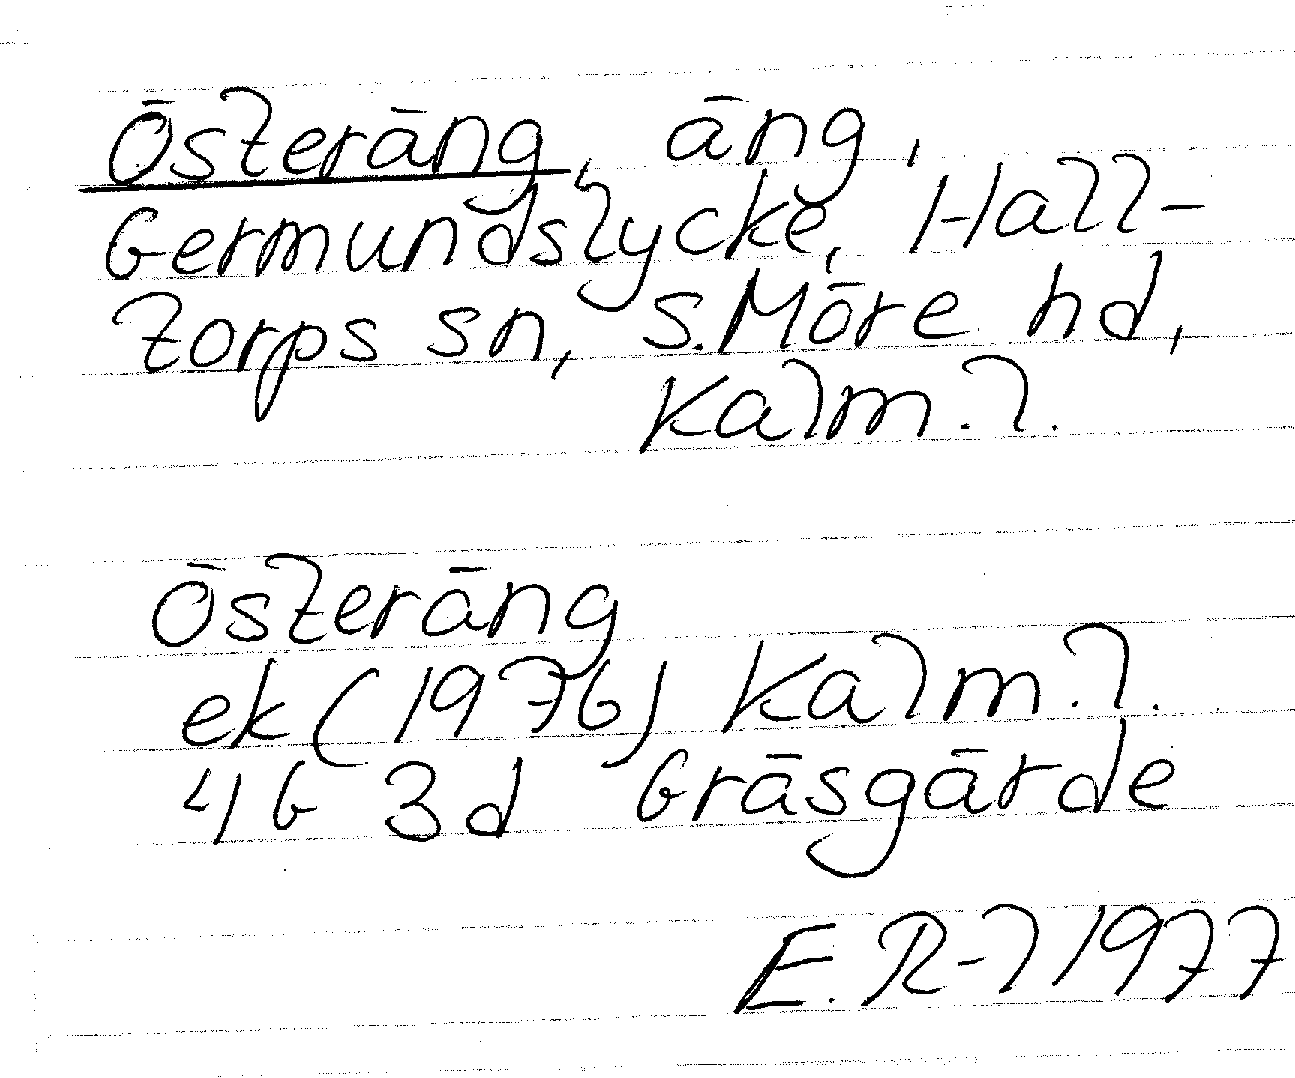 Österäng, äng,
Germundslycke, Hall-
torps sn, S. Möre hd,
Kalm. l.
Österäng
ek (1976) Kalm. l.
4G 3d Gräsgärde
E. R-l 1977